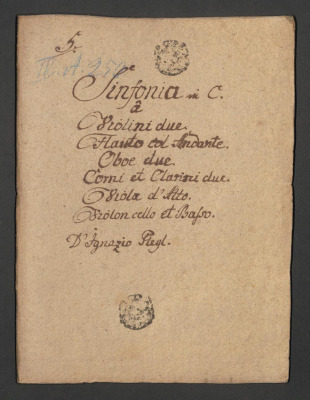 5.
II. A. 250
Sinfonia in C.
à
Violini due.
Flauto col Andante.
Oboe due.
Corni et Clarini due.
Viola d'Alto.
Violoncello et Basso.
D'Ignazio Plegl.